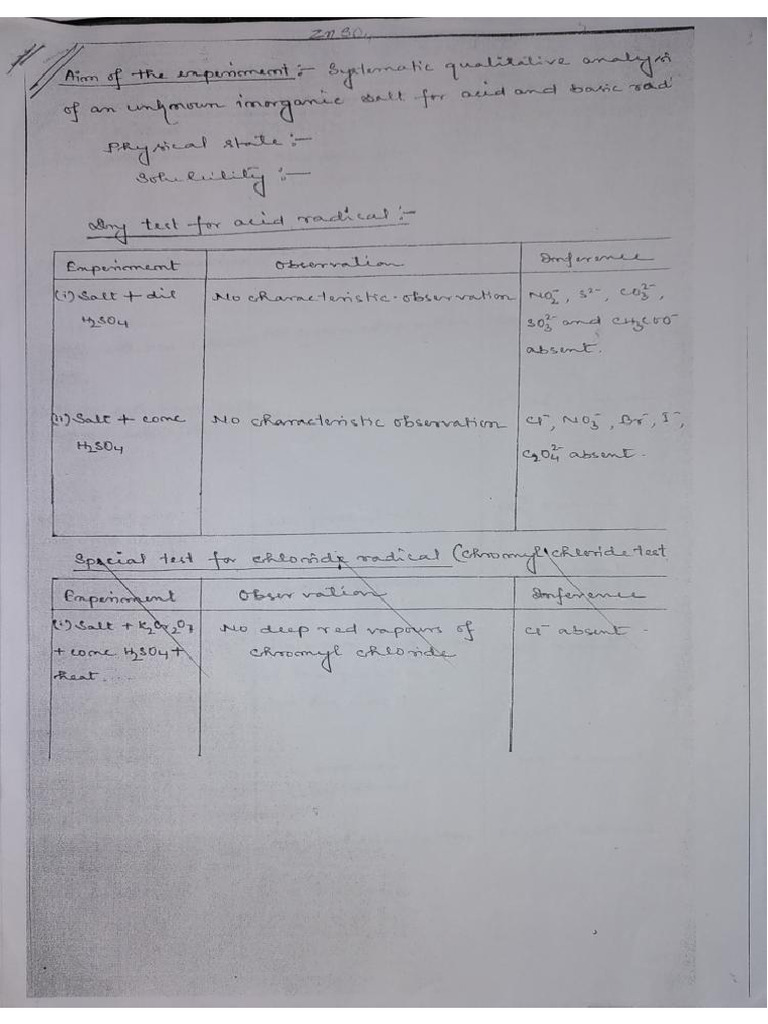 ZnSO4
Aim of the experiment :- Systematic qualitative analysis
of an unknown inorganic salt for acid and basic rad
Physical state :-
Solubility :-
Dry test for acid radical :-
Experiment Observation Inference
(i) Salt + dil No characteristic observation NO₂⁻, S²⁻, CO₃²⁻,
H₂SO₄ SO₃²⁻ and CH₃COO⁻
absent.
(ii) Salt + conc No characteristic observation Cl⁻, NO₃⁻, Br⁻, I⁻,
H₂SO₄ C₂O₄²⁻ absent.
Special test for chloride radical (chromyl chloride test
Experiment Observation Inference
(i) Salt + K₂Cr₂O₇ No deep red vapours of Cl⁻ absent.
+ conc H₂SO₄ + chromyl chloride
heat.....